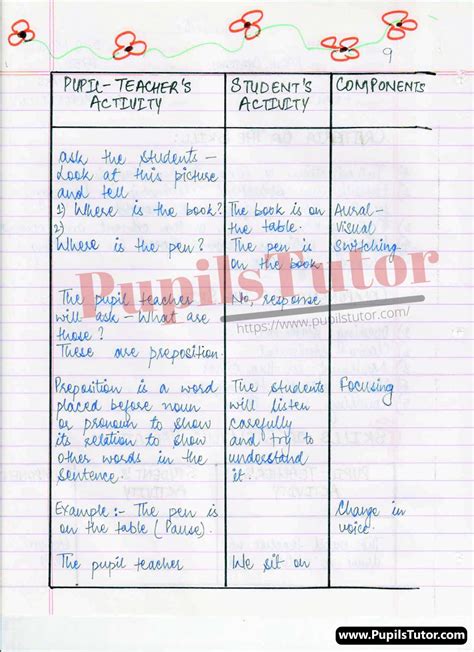 9
PUPIL-TEACHER'S
ACTIVITY
STUDENT'S
ACTIVITY
COMPONENTS
ask the students –
Look at this picture
and tell
1) Where is the book?
2)
Where is the pen?
The book is on
the table.
The pen is
on the book
Aural-
visual
switching
The pupil teacher
will ask – What are
those?
These are preposition.
No, response
Preposition is a word
placed before noun
or pronoun to show
its relation to show
other words in the
sentence.
The students
will listen
carefully
and try to
understand
it.
Focusing
Example :- The pen is
on the table (Pause).
Change in
voice.
The pupil teacher
We sit on
PupilsTutor
https://www.pupilstutor.com/
www.PupilsTutor.com